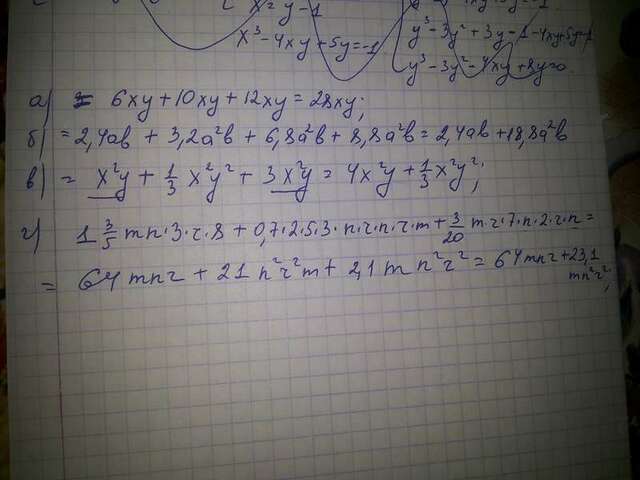 x = y - 1
x³ - 4xy + 5y = -1
y³ - 3y² + 3y - 1 - 4xy + 5y = -1
y³ - 3y² - 4xy + 8y = 0
а) 6xy + 10xy + 12xy = 28xy;
б) = 2,4ab + 3,2a²b + 6,8a²b + 8,8a²b = 2,4ab + 18,8a²b
в) = x²y + 1/3 x²y² + 3x²y = 4x²y + 1/3 x²y²;
г) 1 3/5 mn·3·r·8 + 0,7·2·5·3·n·r·n·r·m + 3/20 m·r·7·n·2·r·n =
= 64mnr + 21n²r²m + 2,1mn²r² = 64mnr + 23,1
mn²r²;